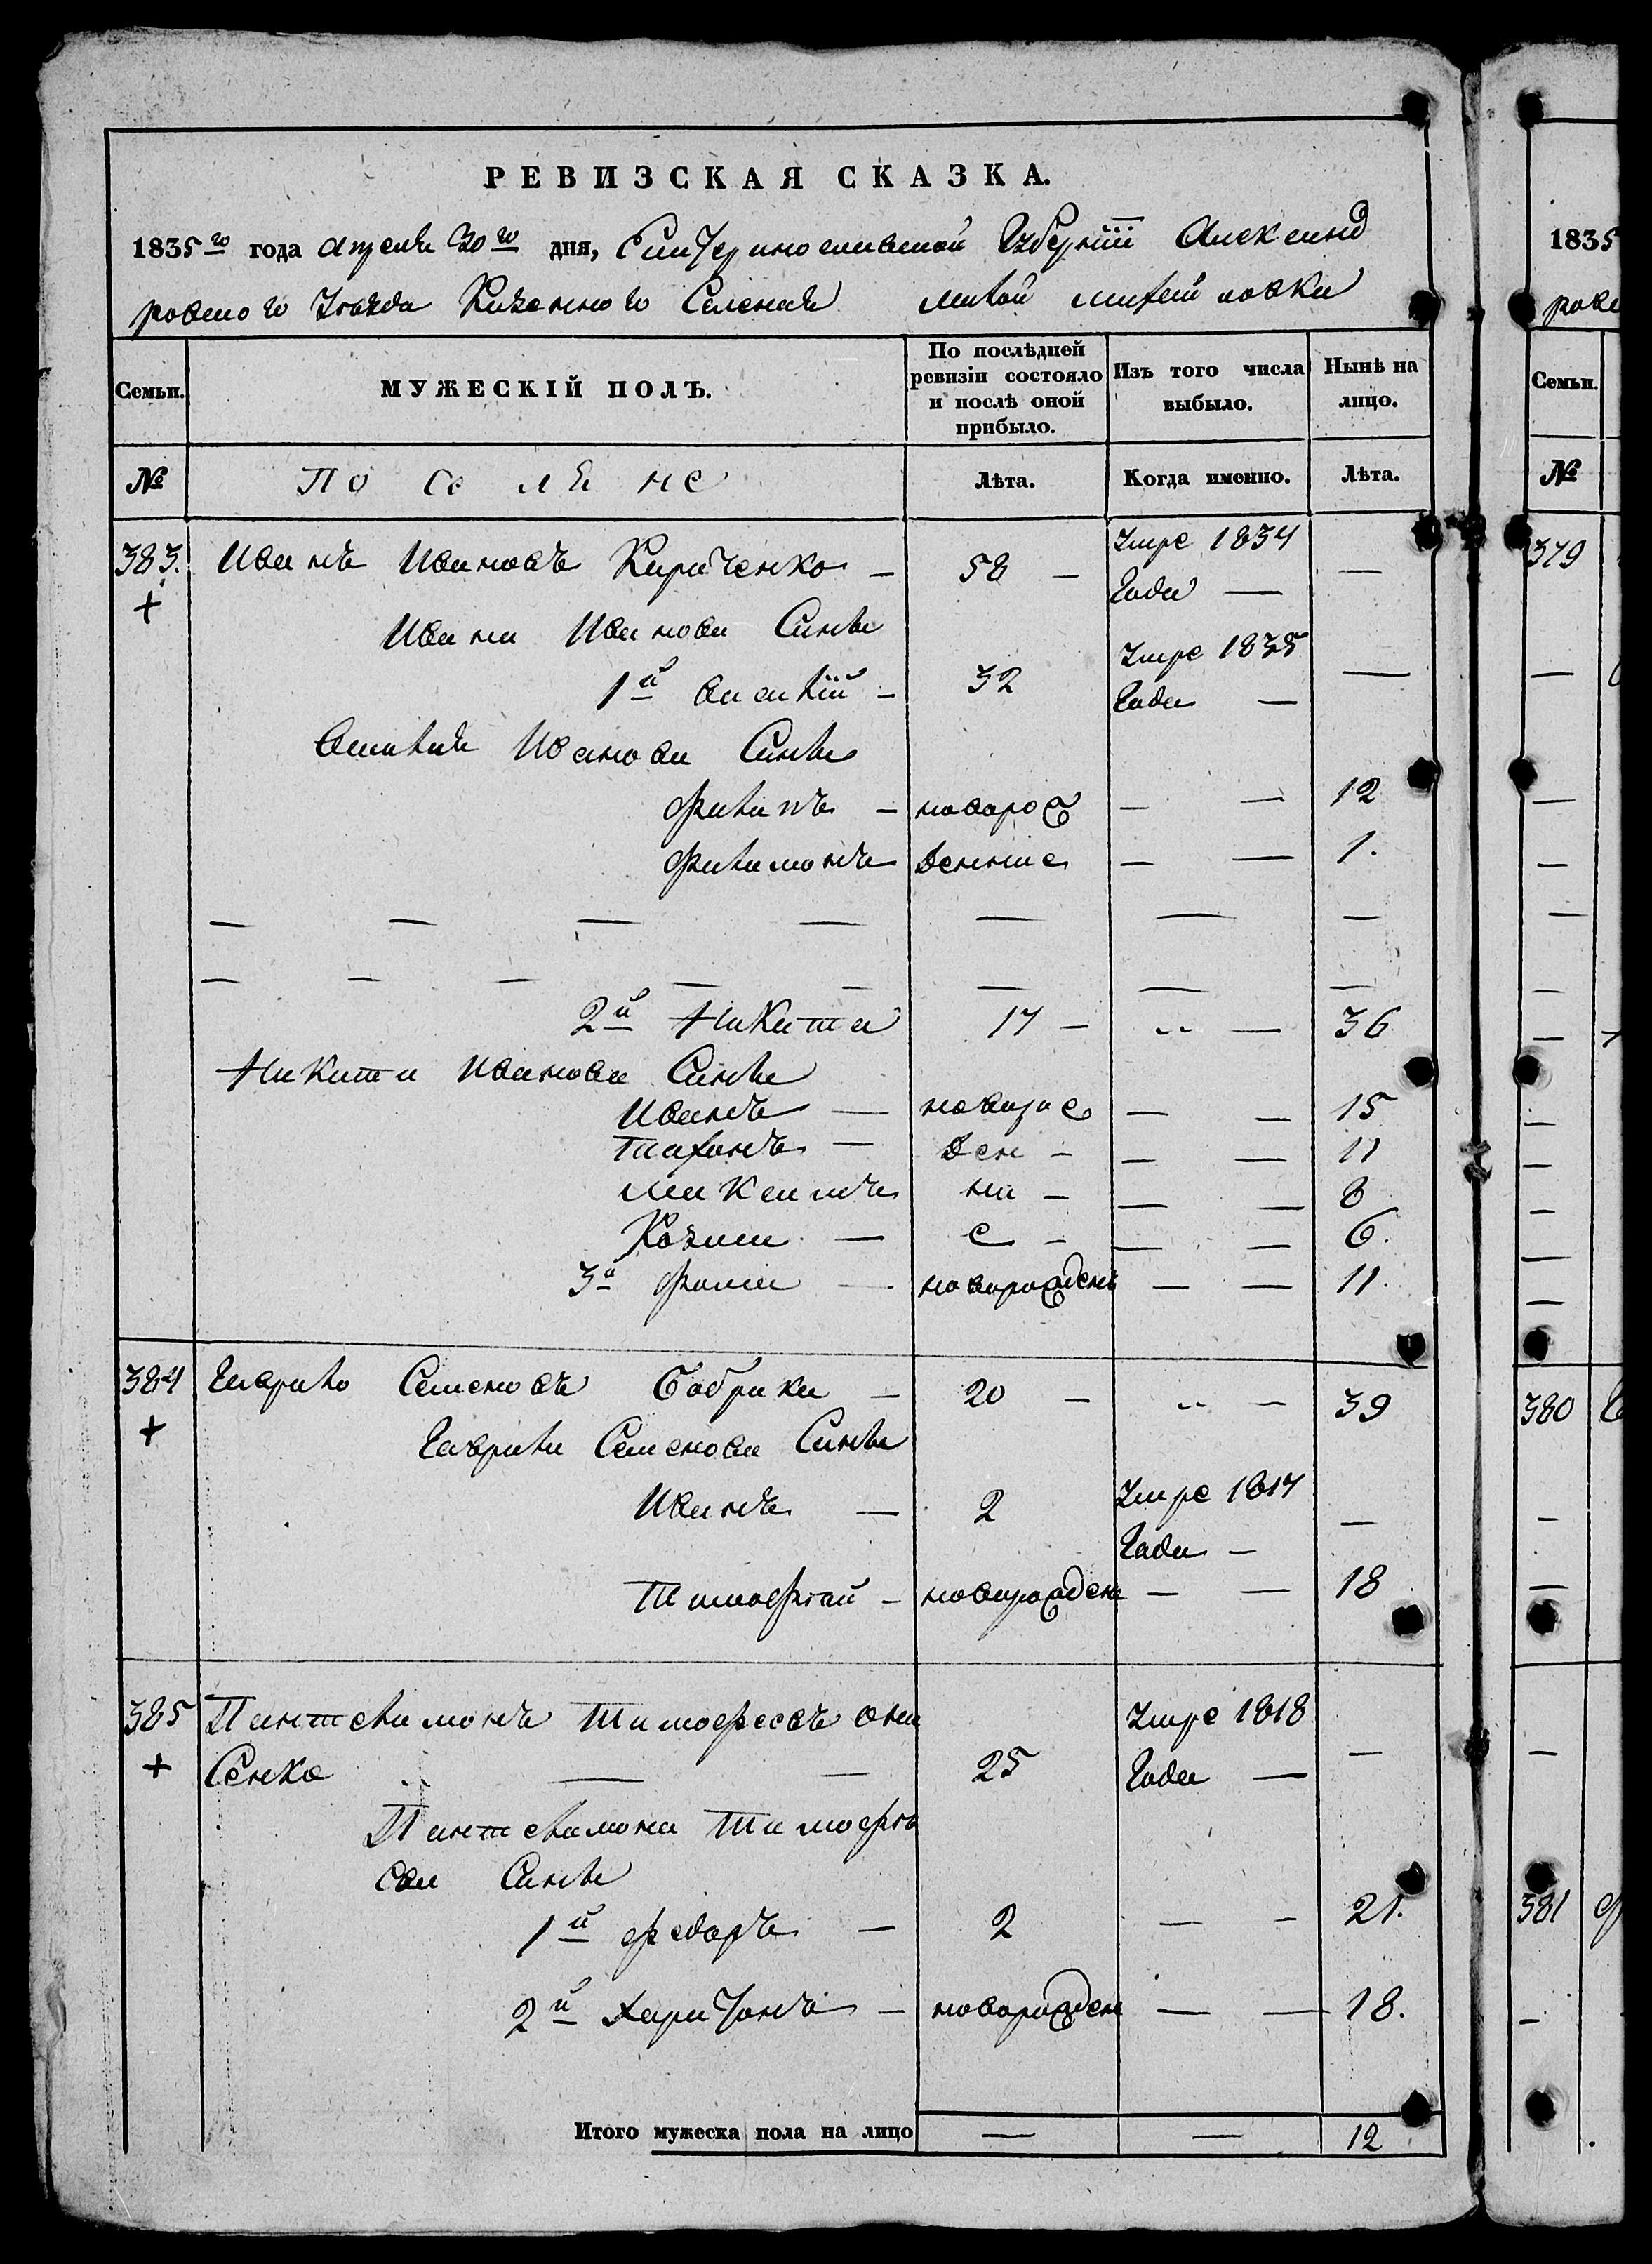 РЕВИЗСКАЯ СКАЗКА.
1835 го года апреля 30 го дня, Екатеринославской Губерніи Александ
ровского Уезда Казенного Селения малой михайловки
Семьи. МУЖЕСКІЙ ПОЛЪ. По послѣдней ревизіи состояло и послѣ оной прибыло. Изъ того числа выбыло. Нынѣ на лицо.
№ Поселяне Лѣта. Когда именно. Лѣта.
383. Иванъ Ивановъ Кириченко — 58 — Умре 1834 года — —
+
Ивана Иванова Синъ
1й 32 Умре 1835 года — —
Иванова Синъ
Филипъ — новорож — — 12
Филимонъ денние — — 1.
— — — — — — —
— — — — — — — —
2й Никита 17 — " — 36
Никити Иванова Синъ
Иванъ — новорож — — 15
Тихонъ — ден — — — 11
Максимъ ни — — — 8
Козма — е — — — 6.
3й Фома — новорожденъ — — 11.
384 Гаврило Семеновъ Бабрика — 20 — " — 39
+
Гаврили Семенова Синъ
Иванъ — 2 Умре 1817 года — —
Тимофѣй — новорожден — — 18
385 Пантелимонъ Тимофеевъ они
+ Сенко " — — 25 Умре 1818 года — —
Пантелимона Тимофѣ
ева Синъ
1й Федоръ — 2 — — 21.
2й Харитонъ — новорожден — — 18.
Итого мужеска пола на лицо — — 12
1835
ровс
Семьи.
№
379
380
381